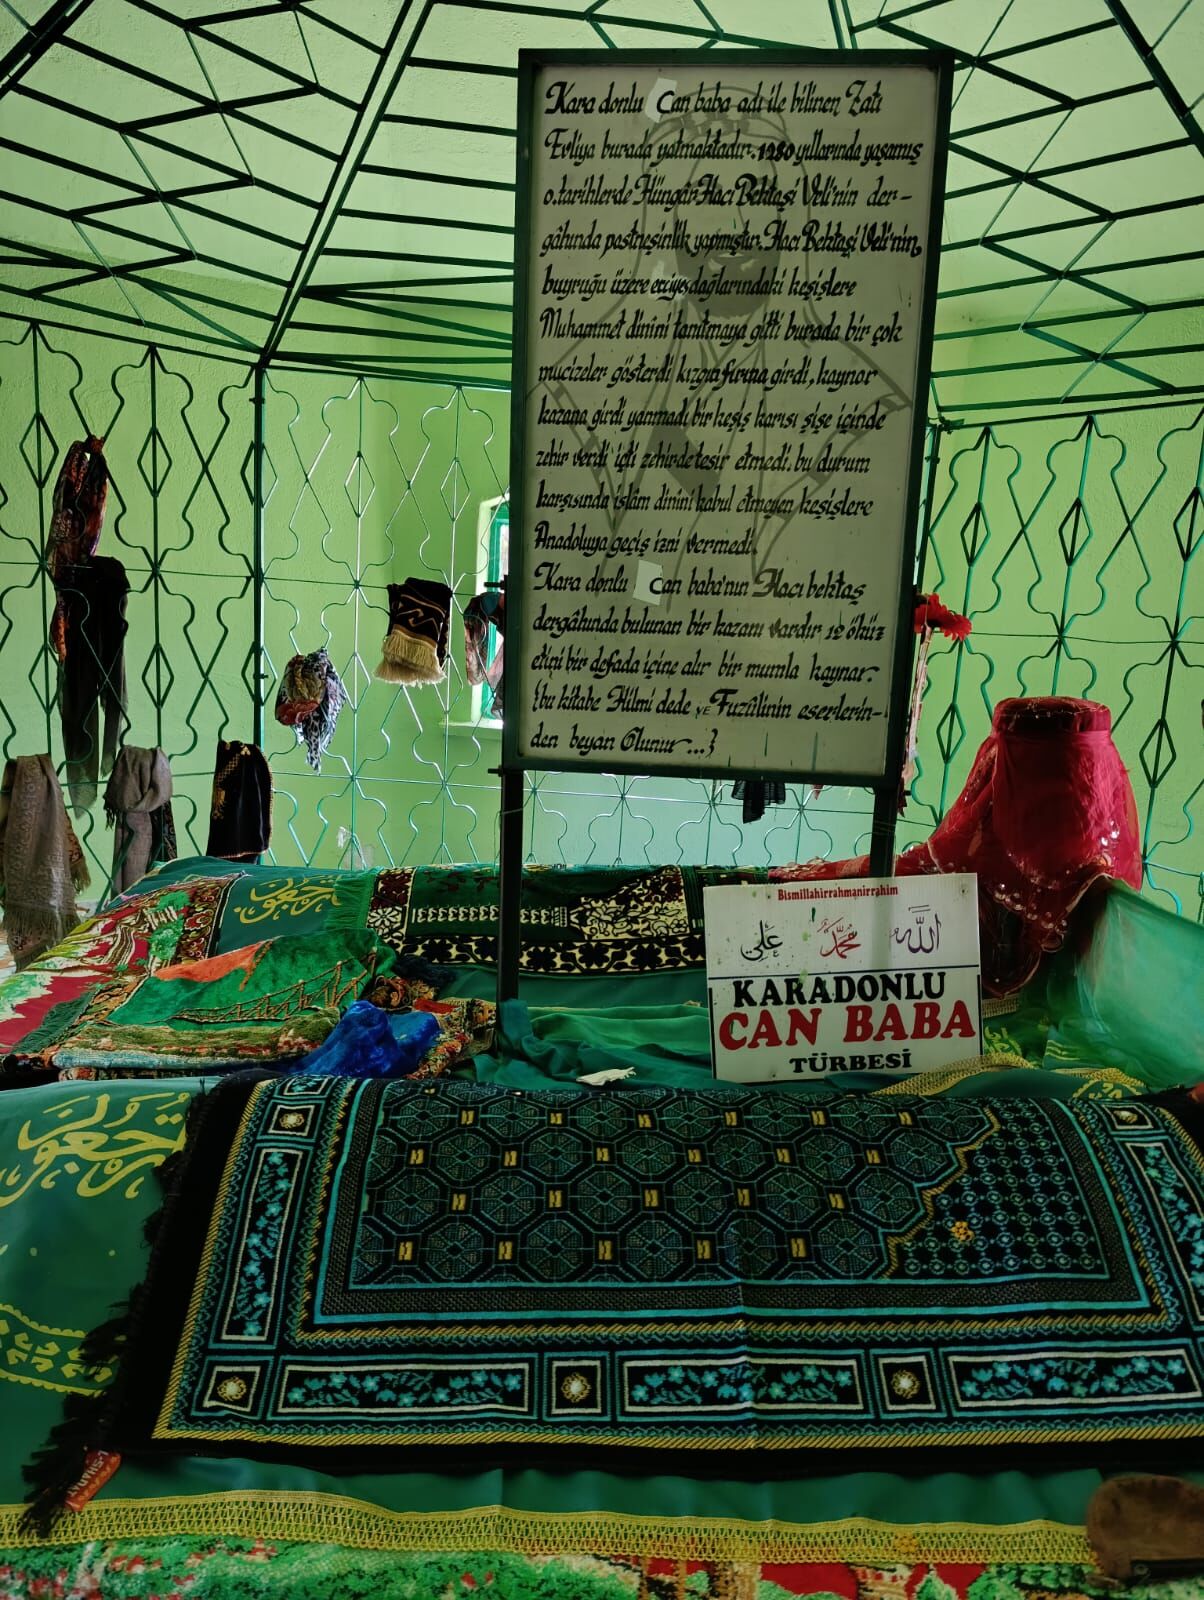 Kara donlu Can baba adı ile bilinen Zatı
Evliya burada yatmaktadır. 1280 yıllarında yaşamış
o.tarihlerde Hüngâr Hacı Bektaşi Veli'nin der-
gâhında postneşinlik yapmıştır. Hacı Bektaşi Veli'nin
buyruğu üzere erciyes dağlarındaki keşişlere
Muhammet dinini tanıtmaya gitti burada bir çok
mucizeler gösterdi kızgın fırına girdi, kaynar
kazana girdi yanmadı bir keşiş karısı şişe içinde
zehir verdi içti zehirde tesir etmedi. bu durum
karşısında islâm dinini kabul etmeyen keşişlere
Anadoluya geçiş izni vermedi.
Kara donlu Can baba'nın Hacı bektaş
dergâhında bulunan bir kazanı vardır 12 öküz
etini bir defada içine alır bir mumla kaynar.
(bu kitabe Hilmi dede VE Fuzûlinin eserlerin-
den beyan Olunur...)
Bismillahirrahmanirrahim
علي محمد الله
KARADONLU
CAN BABA
TÜRBESİ
ترجعون
ترجعون